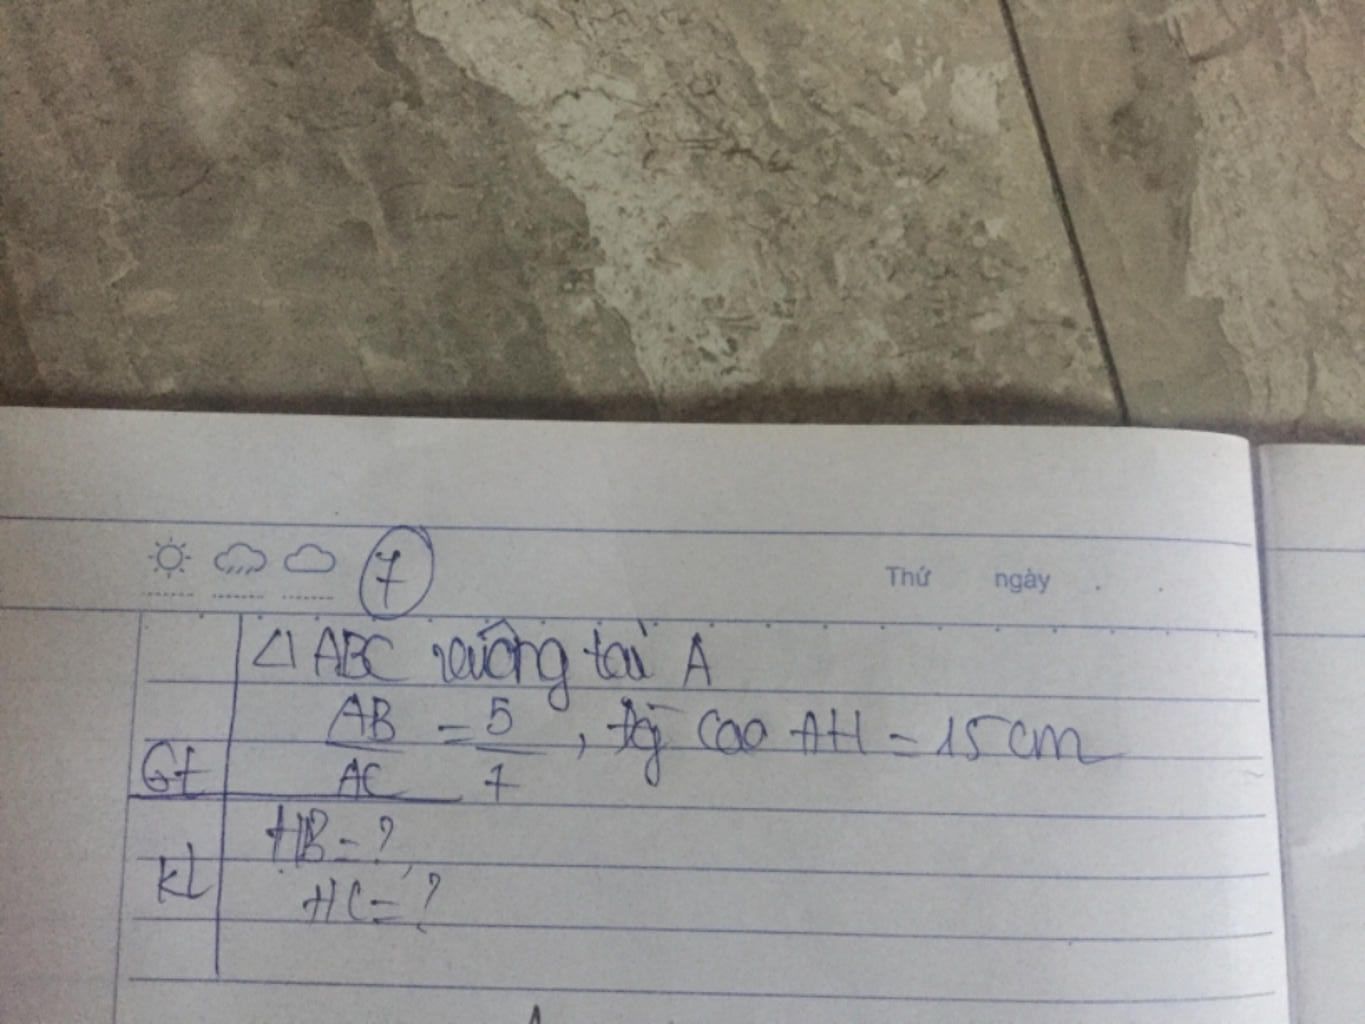 7
Thứ ngày
△ ABC vuông tại A
AB = 5 , đg cao AH = 15 cm
Gt AC 7
HB = ?
KL
HC = ?